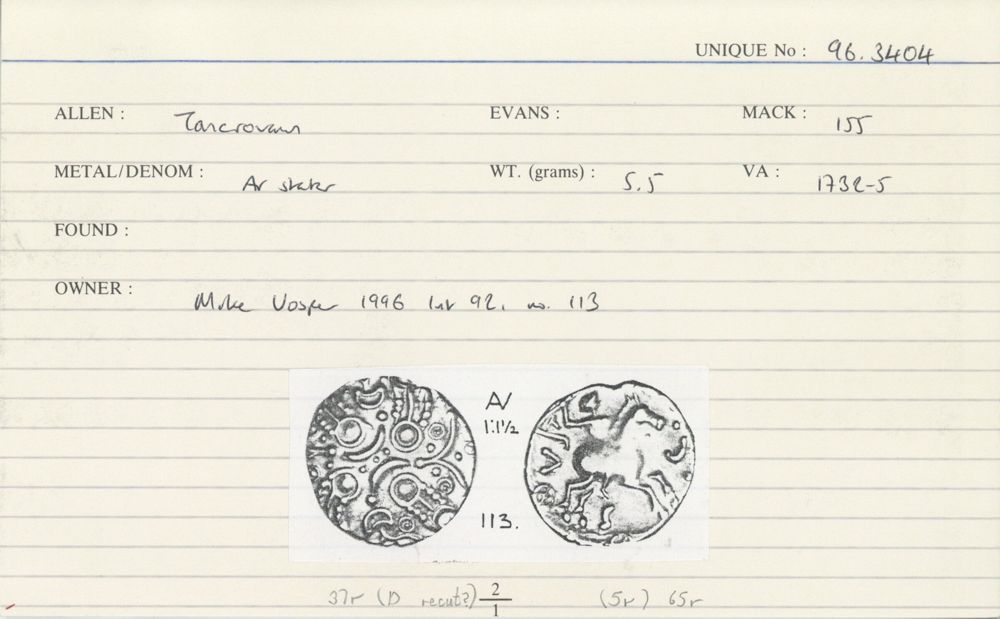 UNIQUE No : 96.3404
ALLEN : Tasciovanus EVANS : MACK : 155
METAL/DENOM : AV stater WT. (grams) : 5.5 VA : 1732-5
FOUND :
OWNER : Mike Vosper 1996 list 92, no. 113
AV
1:1½
113.
37r (D recut?) 2/1 (5r) 65r